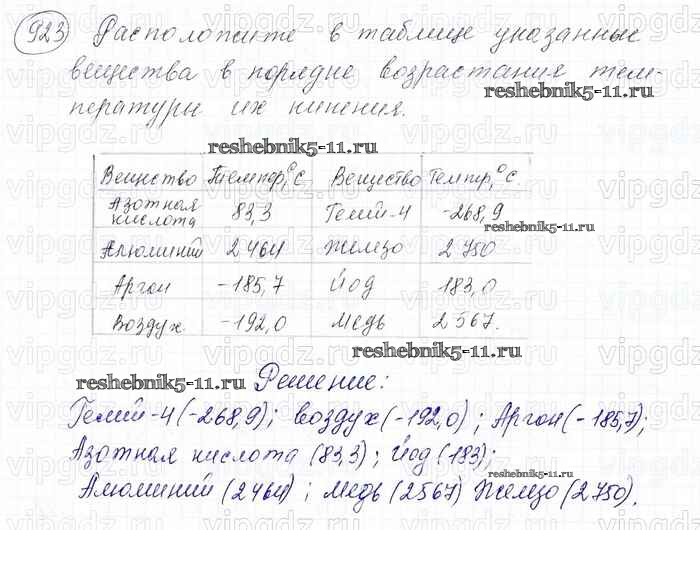 923 Расположите в таблице указанные
вещества в порядке возрастания тем-
пературы их кипения.
reshebnik5-11.ru
reshebnik5-11.ru
Вещество Темпер,°С Вещество Темпер,°С
Азотная кислота 83,3 Гелий-4 -268,9
reshebnik5-11.ru
Алюминий 2464 Железо 2750
Аргон -185,7 Йод 183,0
Воздух -192,0 Медь 2567.
reshebnik5-11.ru
reshebnik5-11.ru Решение:
Гелий-4 (-268,9); воздух (-192,0); Аргон (-185,7);
Азотная кислота (83,3); Йод (183);
reshebnik5-11.ru
Алюминий (2464); медь (2567) Железо (2750).
vipgdz.ru